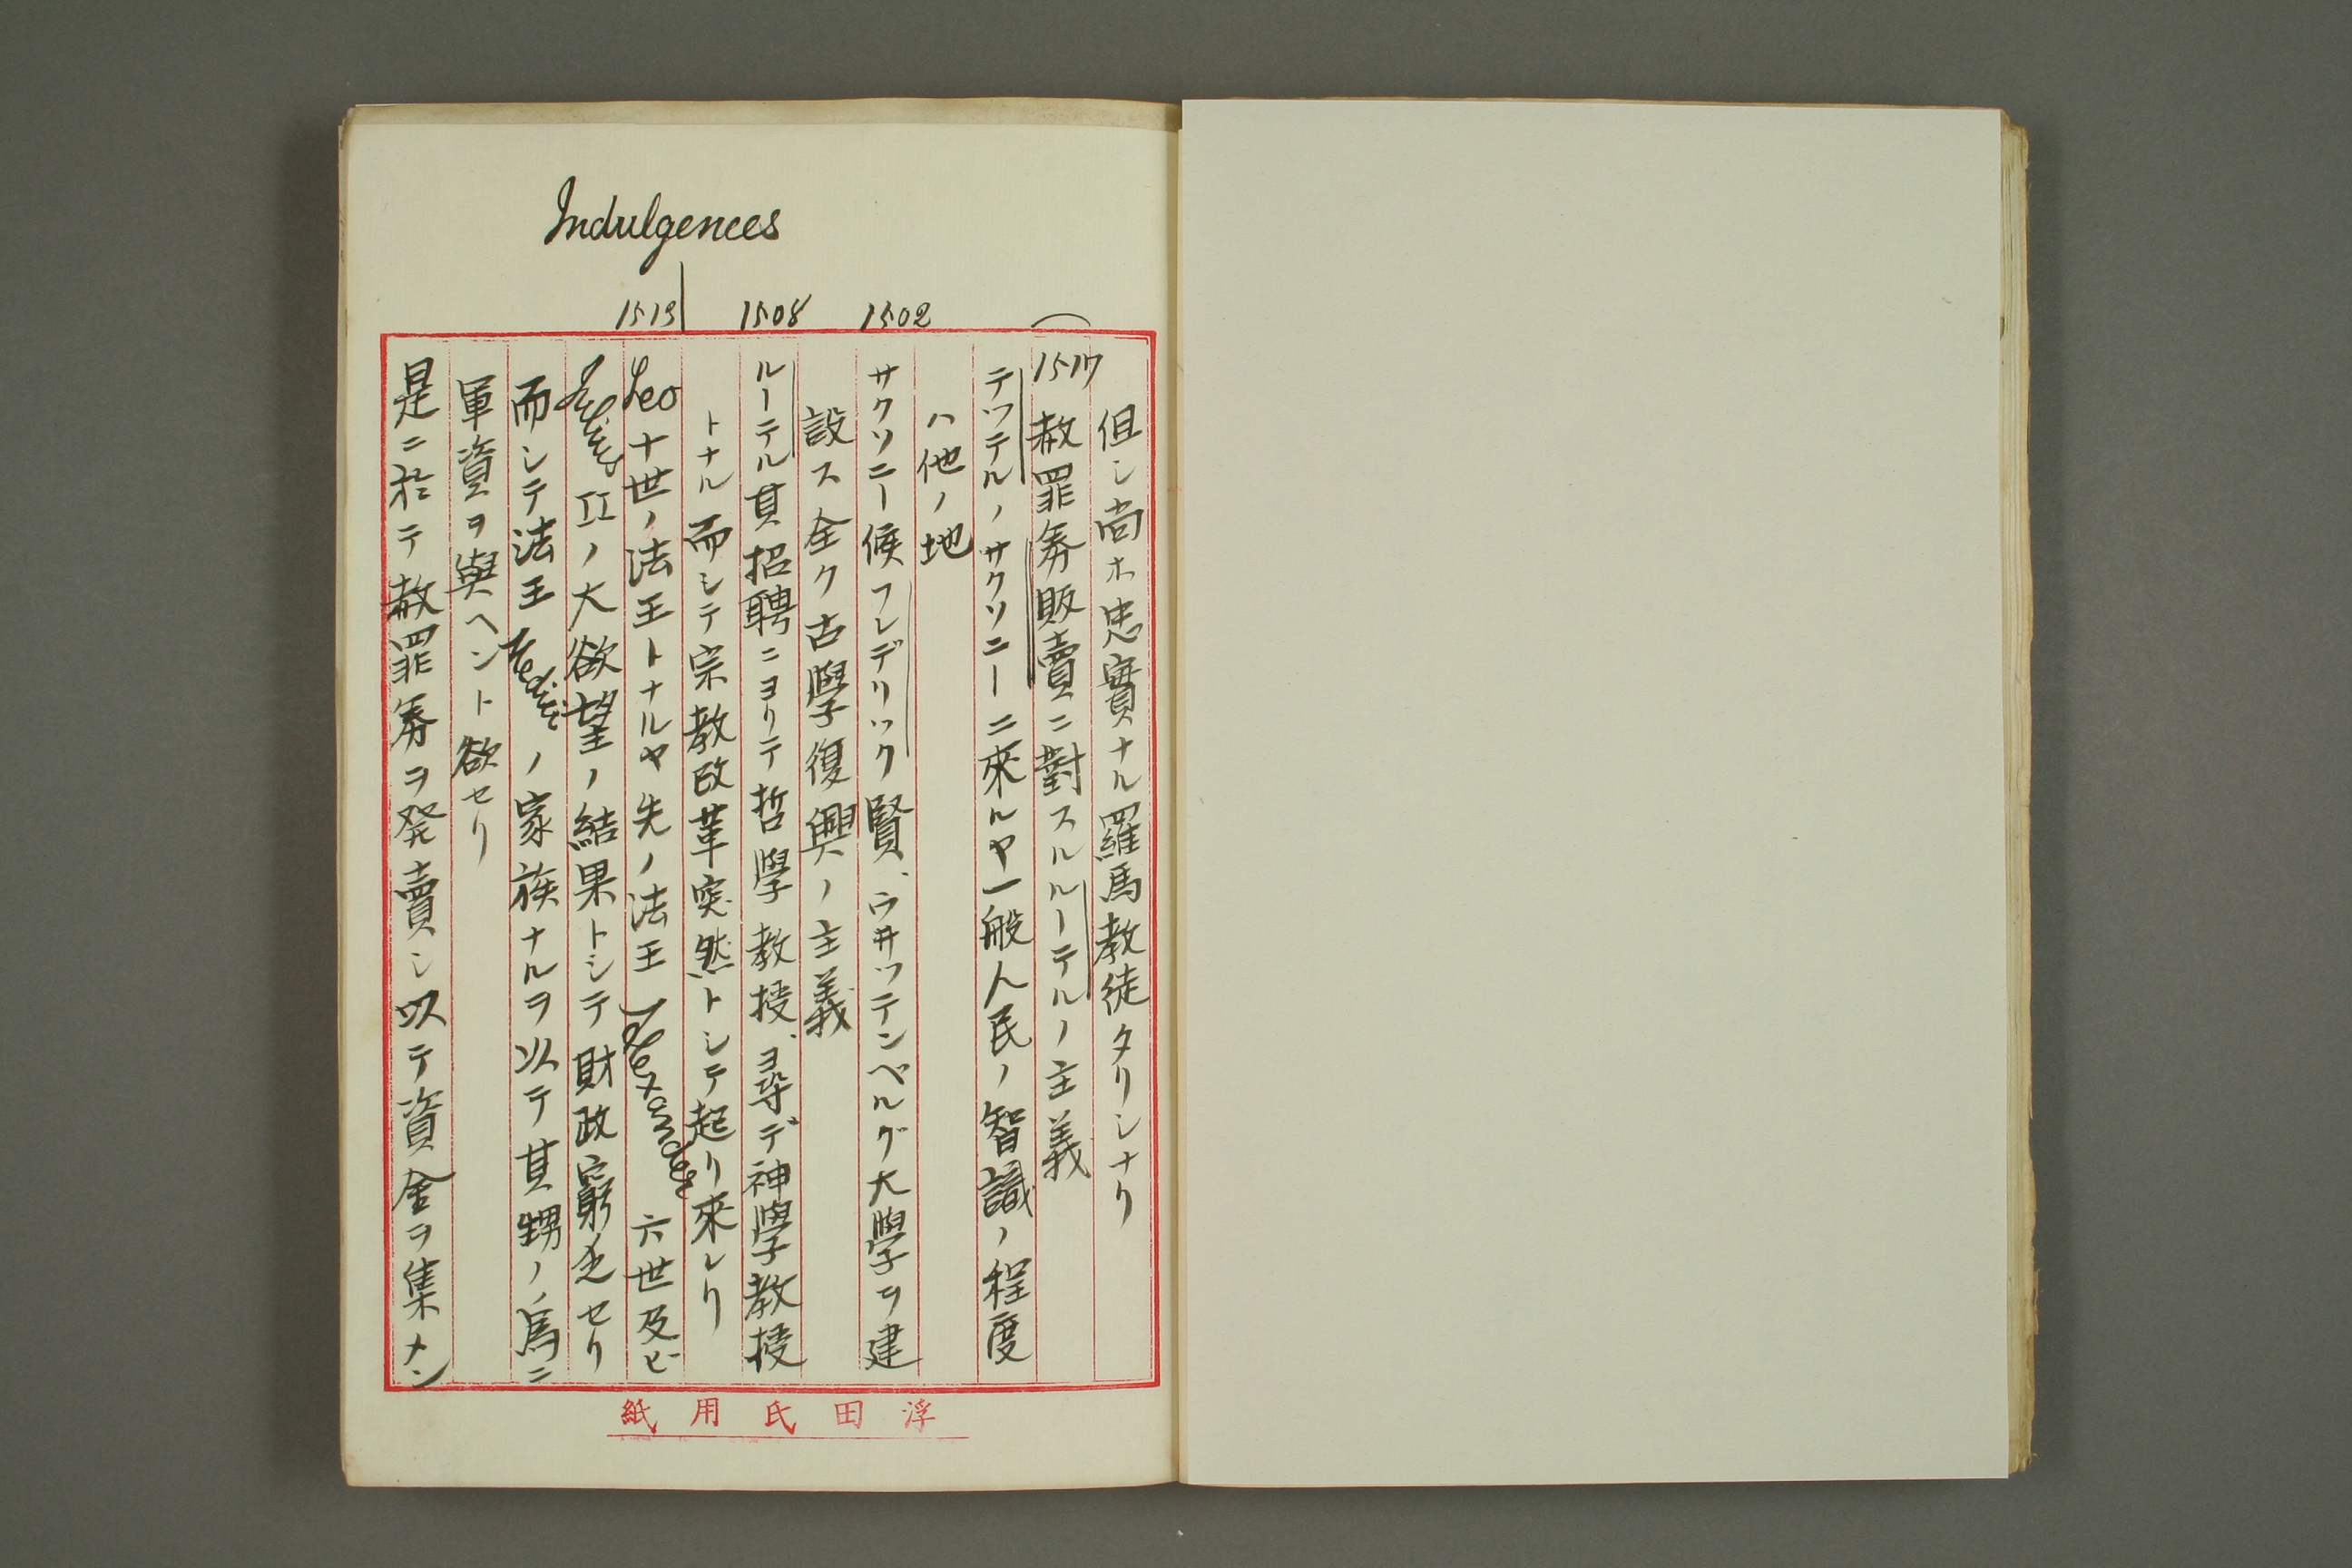 Indulgences
但シ尚ホ忠實ナル羅馬教徒タリシナリ
1517 赦罪券販賣ニ對スルルーテルノ主義
テツテルノサクソニーニ來ルヤ一般人民ノ智識ノ程度
ハ他ノ地
1502
サクソニー侯フレデリック賢、ウヰツテンベルグ大學ヲ建
設ス全ク古學復興ノ主義
1508
ルーテル其招聘ニヨリテ哲學教授、尋デ神學教授
トナル而シテ宗教改革突然トシテ起リ來レリ
1513
Leo十世ノ法王トナルヤ先ノ法王Alexander六世及ビ
Julius IIノ大欲望ノ結果トシテ財政窮乏セリ
而シテ法王Medici ノ家族ナルヲ以テ其甥ノ爲ニ
軍資ヲ與ヘント欲セリ
是ニ於テ赦罪券ヲ発賣シ以テ資金ヲ集メン
浮田氏用紙